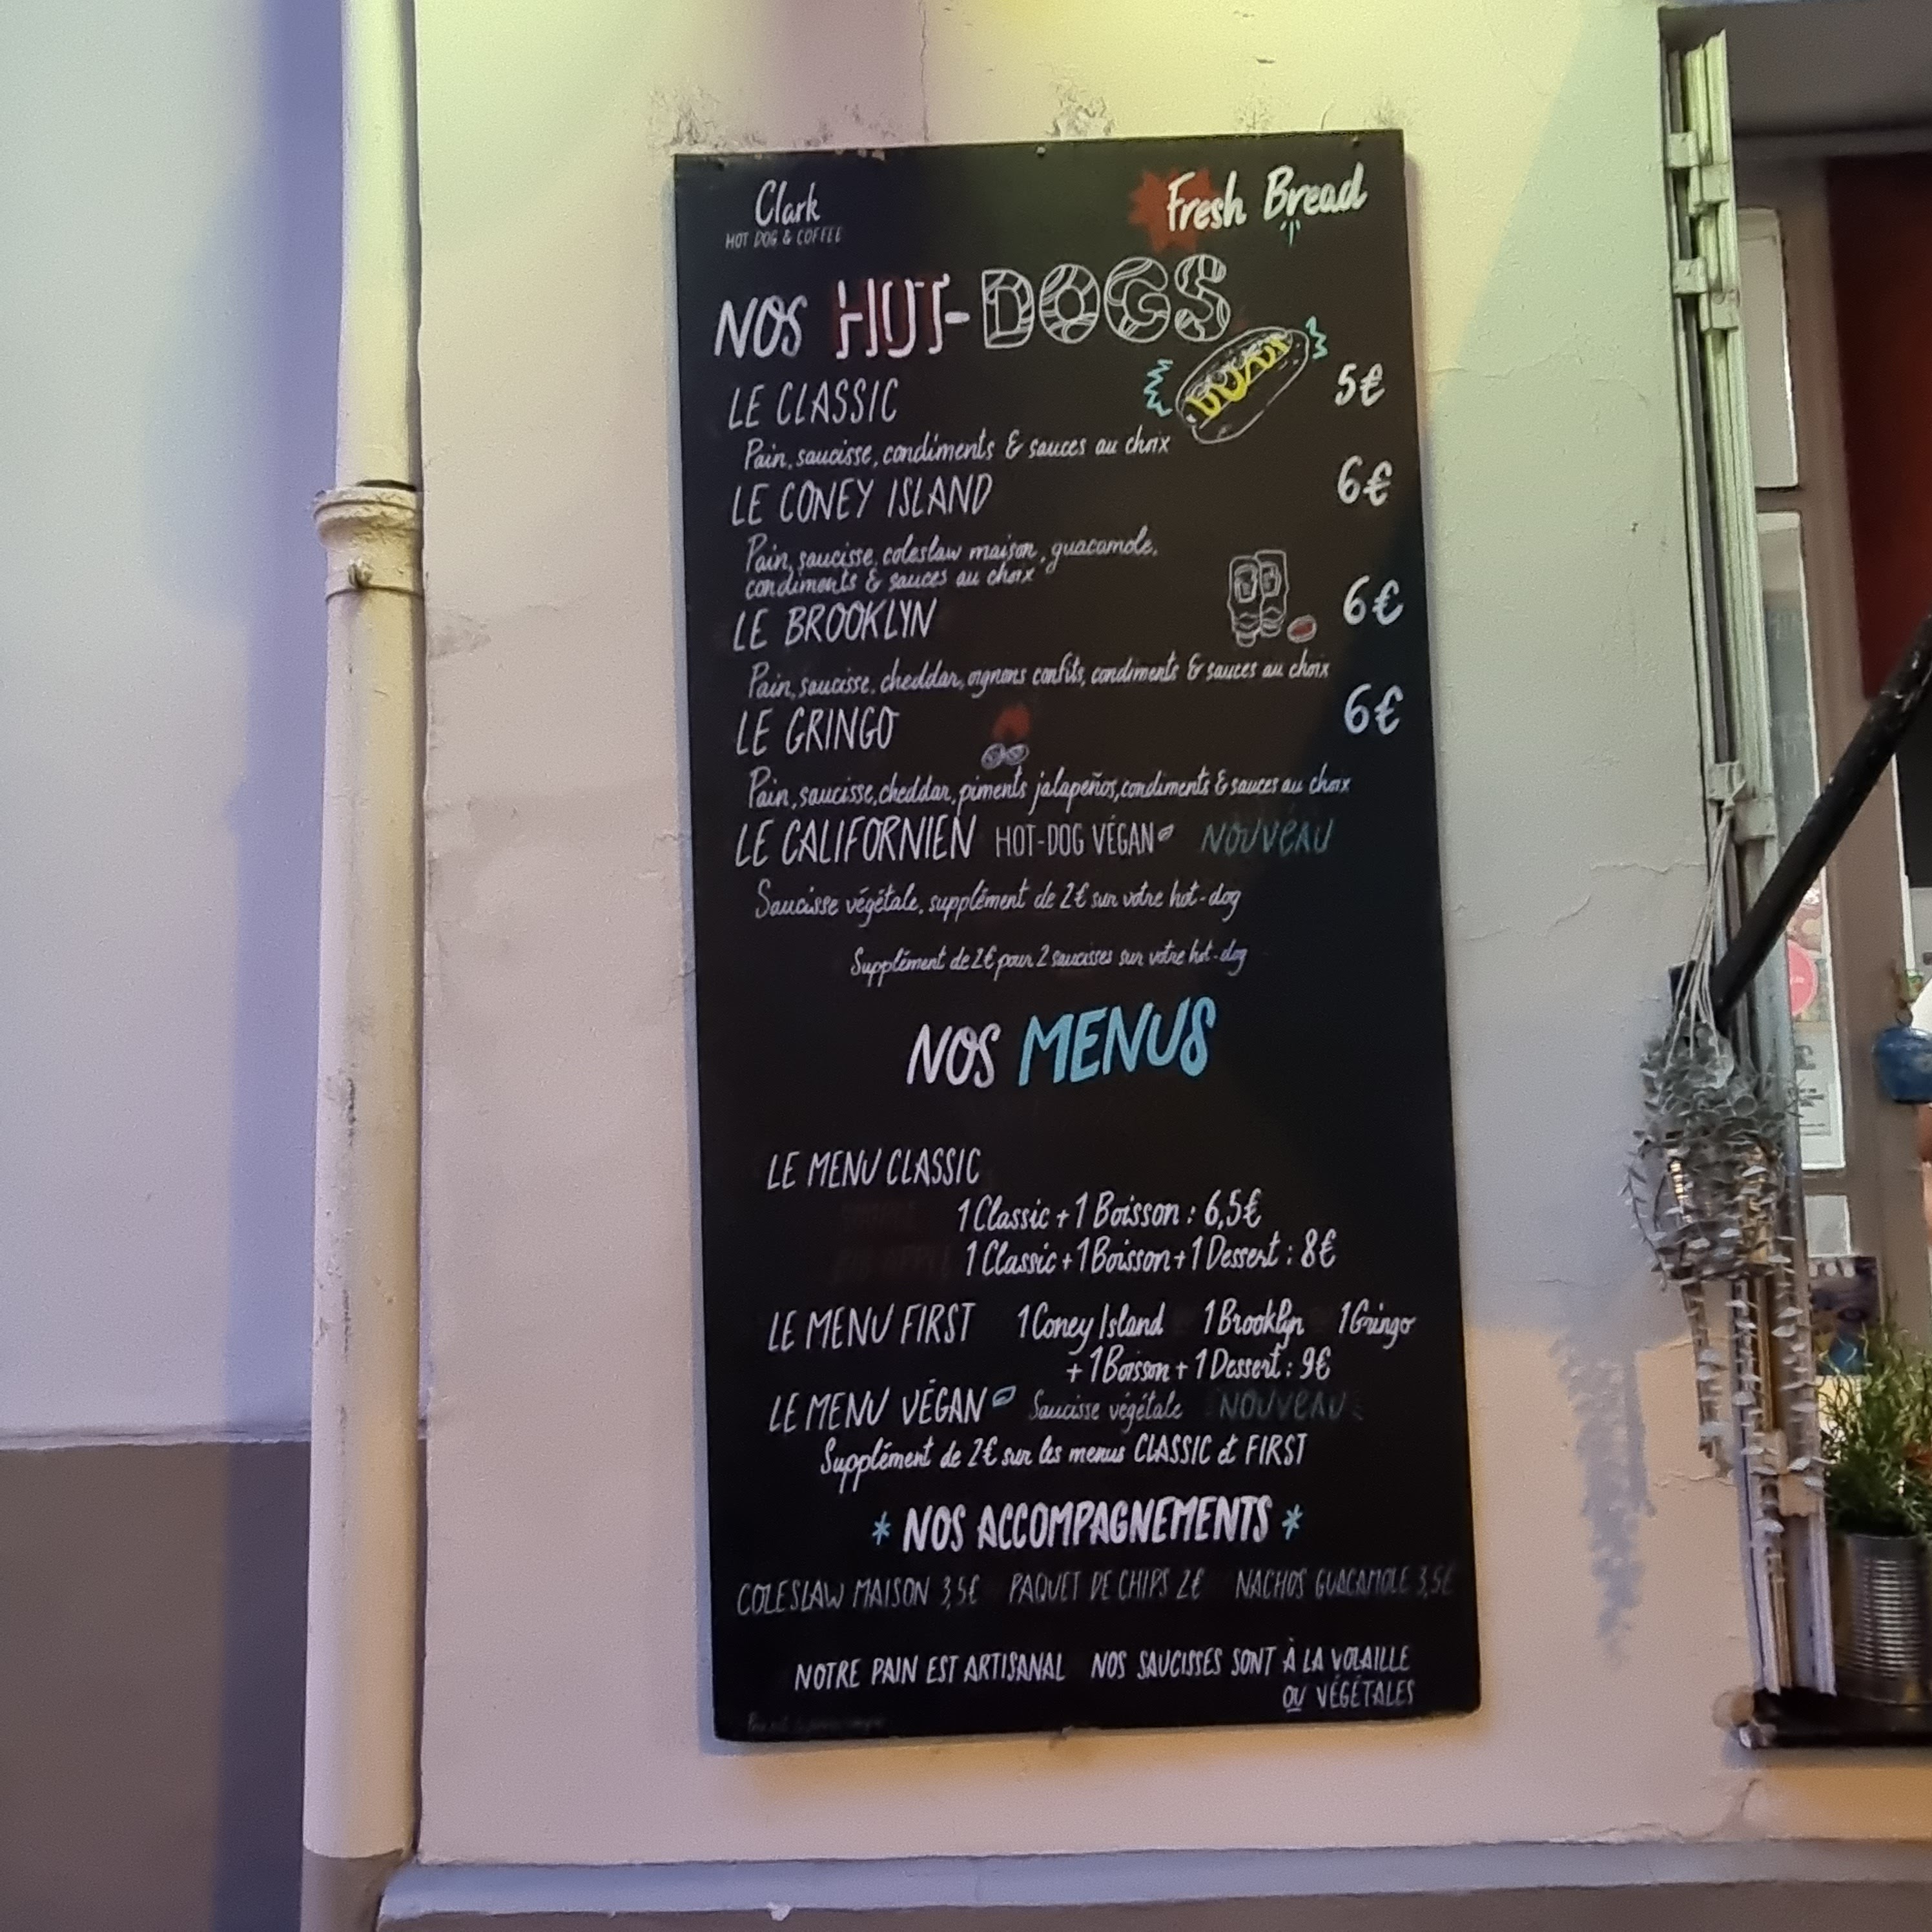 Clark
HOT DOG & COFFEE
Fresh Bread
NOS HOT-DOGS
LE CLASSIC 5€
Pain, saucisse, condiments & sauces au choix
LE CONEY ISLAND 6€
Pain, saucisse, coleslaw maison, guacamole,
condiments & sauces au choix
LE BROOKLYN 6€
Pain, saucisse, cheddar, oignons confits, condiments & sauces au choix
LE GRINGO 6€
Pain, saucisse, cheddar, piments jalapeños, condiments & sauces au choix
LE CALIFORNIEN HOT-DOG VÉGAN NOUVEAU
Saucisse végétale, supplément de 2€ sur votre hot-dog
Supplément de 2€ pour 2 saucisses sur votre hot-dog
NOS MENUS
LE MENU CLASSIC
1 Classic + 1 Boisson : 6,5€
1 Classic + 1 Boisson + 1 Dessert : 8€
LE MENU FIRST 1 Coney Island 1 Brooklyn 1 Gringo
+ 1 Boisson + 1 Dessert : 9€
LE MENU VÉGAN Saucisse végétale NOUVEAU
Supplément de 2€ sur les menus CLASSIC et FIRST
* NOS ACCOMPAGNEMENTS *
COLESLAW MAISON 3,5€ PAQUET DE CHIPS 2€ NACHOS GUACAMOLE 3,5€
NOTRE PAIN EST ARTISANAL NOS SAUCISSES SONT À LA VOLAILLE
OU VÉGÉTALES